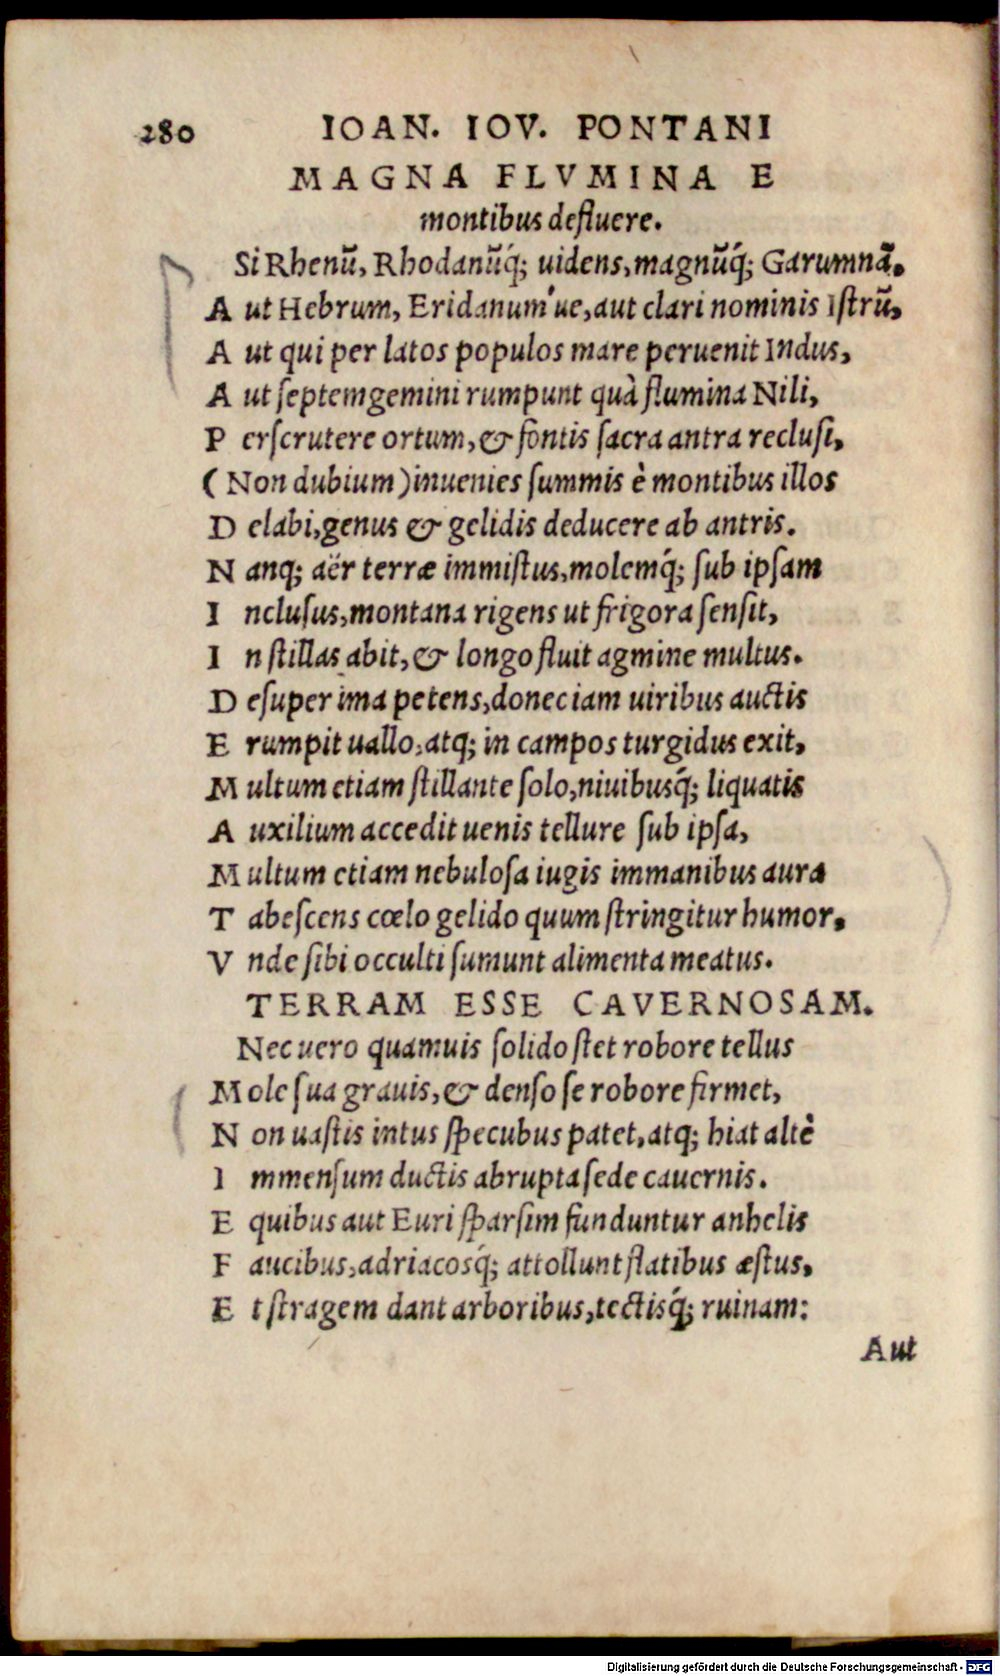 280 IOAN. IOV. PONTANI
MAGNA FLVMINA E
montibus defluere.
Si Rhenũ, Rhodanũq́; uidens, magnũq́; Garumnã.
Aut Hebrum, Eridanum'ue, aut clari nominis Istrũ,
Aut qui per latos populos mare peruenit Indus,
Aut ſeptemgemini rumpunt quà flumina Nili,
Perſcrutere ortum, & fontis ſacra antra recluſi,
(Non dubium) inuenies ſummis è montibus illos
Delabi, genus & gelidis deducere ab antris.
Nanq; aër terræ immiſtus, molemq́; ſub ipſam
Incluſus, montana rigens ut frigora ſenſit,
In ſtillas abit, & longo fluit agmine multus.
Deſuper ima petens, donec iam uiribus auctis
Erumpit uallo, atq; in campos turgidus exit,
Multum etiam ſtillante ſolo, niuibusq́; liquatis
Auxilium accedit uenis tellure ſub ipſa,
Multum etiam nebuloſa iugis immanibus aura
Tabeſcens cœlo gelido quum ſtringitur humor,
Vnde ſibi occulti ſumunt alimenta meatus.
TERRAM ESSE CAVERNOSAM.
Nec uero quamuis ſolido ſtet robore tellus
Mole ſua grauis, & denſo ſe robore firmet,
Non uaſtis intus ſpecubus patet, atq; hiat altè
Immenſum ductis abrupta ſede cauernis.
E quibus aut Euri ſparſim funduntur anhelis
Faucibus, adriacosq́; attollunt flatibus æſtus,
Et ſtragem dant arboribus, tectisq́; ruinam:
Aut
Digitalisierung gefördert durch die Deutsche Forschungsgemeinschaft - DFG